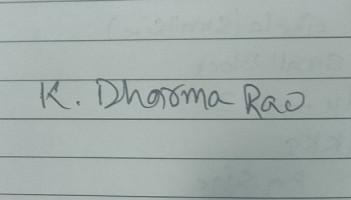 K. Dharma Rao